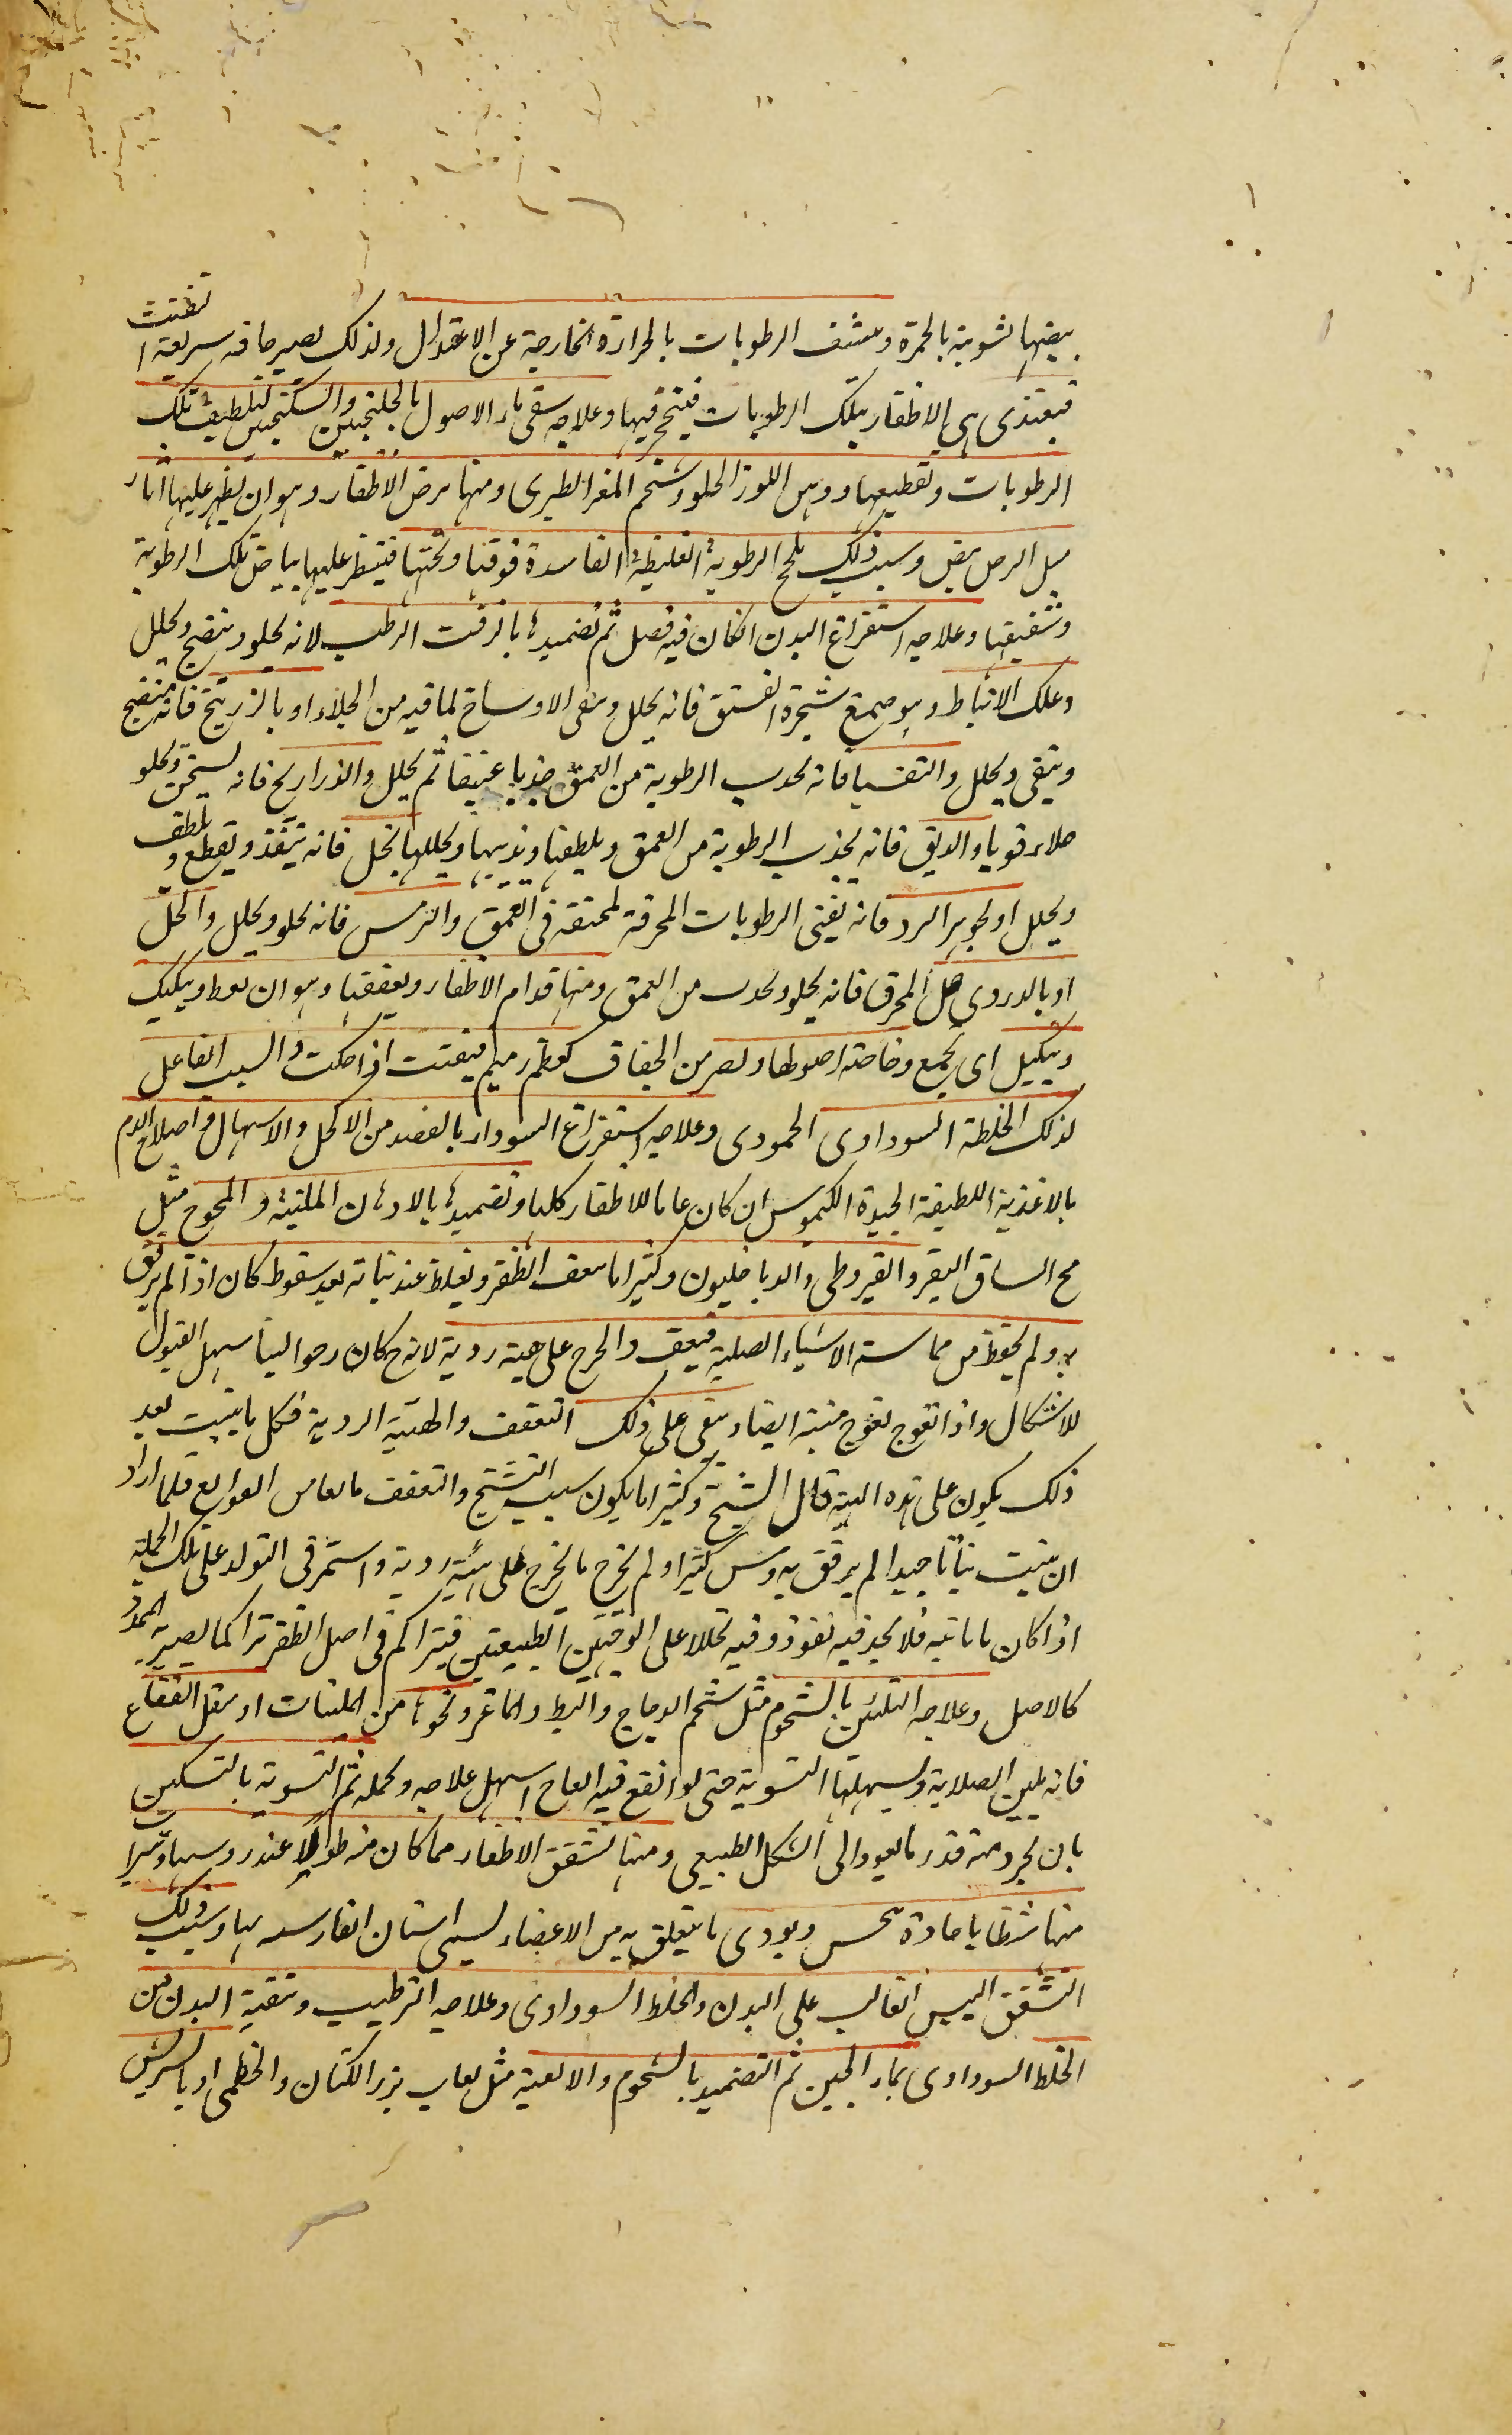 بيضها لشوبته بالحمرة وينشف الرطوبات بالحرارة الخارجية عن الاعتدال ولذلك يصير حافه سريعة التفتت
فيغتذى هى الاظفار بتلك الرطوبات وعلاجه سقى ماء الاصول بالجلنجبين والسكنجبين لتلطيف تلك
الرطوبات وتقطيعها ودهن اللوز الحلو وشحم المعز الطرى ومنها برص الاظفار وهو ان يظهر عليها اثار
مثل البرص بيض وسبب ذلك تلحج الرطوبة الغليظة الفاسدة فوقها وتحتها عليها بياض تلك الرطوبة
وعلاجه استفراغ البدن انكان فيه فضل ثم تضميدها بالزفت الرطب لانه يجلو وينضج ويحلل
وعلك الانباط وهو صمغ شجرة الفستق فانه يحلل وينقى الاوساخ لما فيه من الجلاء او بالزرنيخ فانه ينضج
وينقى ويحلل والتفسيا فانه يجذب الرطوبة من العمق جذبا عنيفا ثم يحلل والذراريح فانه يسخن ويجلو
جلاء قويا والدبق فانه يجذب الرطوبة من العمق ويلطفها ويذيبها ويحللها بالخل فانه ينفذ ويقطع ويلطف
ويحلل او بجوهر السرو فانه يفنى الرطوبات المحتقنة فى العمق والترمس فانه يجلو ويحلل والخل
او بالدردى المحرق فانه يجلو ويجذب من العمق ومنها جذام الاظفار وتعقفها وهو ان تغلظ
اى تجمع وخاصة اصولها وتصير من الجفاف كعظم رميم يتفتت اذا حكت والسبب الفاعل
لذلك الخلط السوداوى وعلاجه استفراغ السوداء بالفصد من الاكحل والاسهال واصلاح الدم
بالاغذية اللطيفة الجيدة الكيموس ان كان عاما للاظفار كلها وتضميدها بالادهان الملينة والمخوخ مثل
مخ الساق البقر والقيروطى والدياخليون وكثيرا ما يتعقف الظفر ويغلظ عند نباته بعد سقوط كان اذا لم يرفق
به ولم يحفظ من مماسة الاشياء الصلبة فيتعقف على هيئة ردية لانه ح كان رخوا لينا سهل القبول
للاشكال واذا تعوج تعوج منبته ايضا وبقى على ذلك التعقف والهيئة الردية فكل ما ينبت بعد
ذلك يكون على هذه الهيئة قال الشيخ وكثيرا ما يكون سبب التشنج والتعقف فلما اراد
ان ينبت نباتا جيدا لم يرفق به ومس كثيرا ولم يخرج ما يخرج على هيئة ردية واستمر فى التولد على تلك الجملة
اذا كان ما ياتيه فلا يجد فيه نفوذ وفيه تحللا على الوجهين الطبيعيين فيتراكم فى اصل الظفر تراكما يصير به
كالاصل وعلاجه التليين بالشحوم مثل شحم الدجاج والبط والماعز ونحوها من الملينات او بثفل الفقاع
فانه يلين الصلابة ويسهلها التسوية حتى لو انقع فيه العاج اسهل علاجه وعمله ثم التسوية بالسكين
بان يجرد منه قدر ما يعود الى الشكل الطبيعى ومنها تشقق الاظفار مما كان منه طولا عند روسها
منها شظايا حادة ويوذى ما يتعلق به من الاعضاء يسمى اسنان الفار وسبب ذلك
التشقق اليبس الغالب على البدن والخلط السوداوى وعلاجه الترطيب وتنقية البدن من
الخلط السوداوى بماء الجبن ثم التضميد بالشحوم والالعبة مثل لعاب بزر الكتان والخطمى او بالسريش